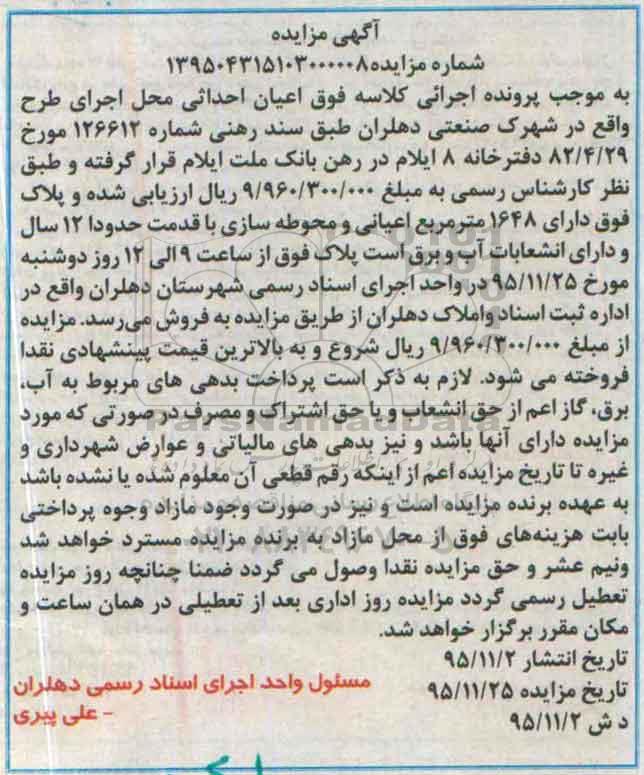 آگهی مزایده
شماره مزایده۱۳۹۵۰۴۳۱۵۱۰۳۰۰۰۰۰۸
به موجب پرونده اجرائی کلاسه فوق اعیان احداثی محل اجرای طرح
واقع در شهرک صنعتی دهلران طبق سند رهنی شماره ۱۲۶۶۱۲ مورخ
۸۲/۴/۲۹ دفترخانه ۸ ایلام در رهن بانک ملت ایلام قرار گرفته و طبق
نظر کارشناس رسمی به مبلغ ۹/۹۶۰/۳۰۰/۰۰۰ ریال ارزیابی شده و پلاک
فوق دارای ۱۶۴۸ مترمربع اعیانی و محوطه سازی با قدمت حدودا ۱۲ سال
و دارای انشعابات آب و برق است پلاک فوق از ساعت ۹ الی ۱۲ روز دوشنبه
مورخ ۹۵/۱۱/۲۵ در واحد اجرای اسناد رسمی شهرستان دهلران واقع در
اداره ثبت اسناد واملاک دهلران از طریق مزایده به فروش می‌رسد. مزایده
از مبلغ ۹/۹۶۰/۳۰۰/۰۰۰ ریال شروع و به بالاترین قیمت پیشنهادی نقدا
فروخته می شود. لازم به ذکر است پرداخت بدهی های مربوط به آب،
برق، گاز اعم از حق انشعاب و یا حق اشتراک و مصرف در صورتی که مورد
مزایده دارای آنها باشد و نیز بدهی های مالیاتی و عوارض شهرداری و
غیره تا تاریخ مزایده اعم از اینکه رقم قطعی آن معلوم شده یا نشده باشد
به عهده برنده مزایده است و نیز در صورت وجود مازاد وجوه پرداختی
بابت هزینه‌های فوق از محل مازاد به برنده مزایده مسترد خواهد شد
ونیم عشر و حق مزایده نقدا وصول می گردد ضمنا چنانچه روز مزایده
تعطیل رسمی گردد مزایده روز اداری بعد از تعطیلی در همان ساعت و
مکان مقرر برگزار خواهد شد.
تاریخ انتشار ۹۵/۱۱/۲
تاریخ مزایده ۹۵/۱۱/۲۵
د ش ۹۵/۱۱/۲
مسئول واحد اجرای اسناد رسمی دهلران
- علی پیری
ParsNamadData